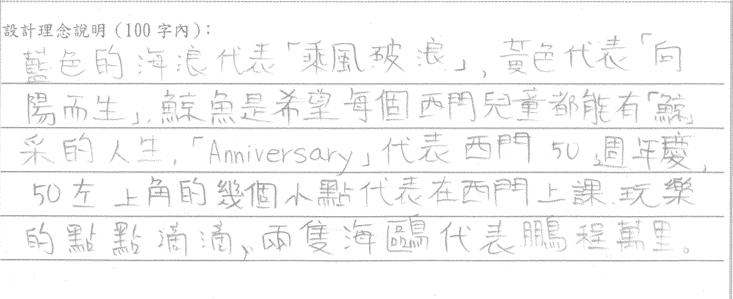 設計理念說明(100字內):
藍色的海浪代表「乘風破浪」,黃色代表「向
陽而生」,鯨魚是希望每個西門兒童都能有「鯨」
采的人生,「Anniversary」代表西門50週年慶,
50左上角的幾個小點代表在西門上課、玩樂
的點點滴滴、兩隻海鷗代表鵬程萬里。